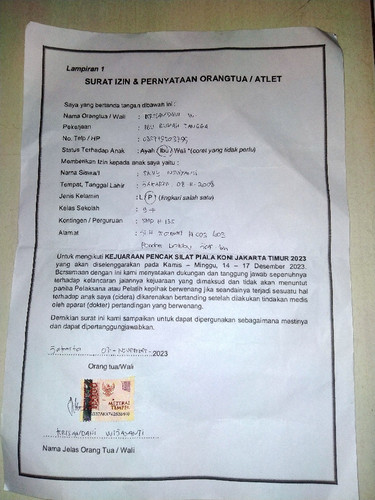 Lampiran 1
SURAT IZIN & PERNYATAAN ORANGTUA / ATLET
Saya yang bertanda tangan dibawah ini :
Nama Orangtua / Wali :
Pekerjaan : IBU RUMAH TANGGA
No. Telp / HP :
Status Terhadap Anak : Ayah / Ibu / Wali *(coret yang tidak perlu)
Memberikan Izin kepada anak saya yaitu :
Nama Siswa/i :
Tempat, Tanggal Lahir : JAKARTA
Jenis Kelamin : L / P (lingkari salah satu)
Kelas Sekolah :
Kontingen / Perguruan :
Alamat :
Untuk mengikuti KEJUARAAN PENCAK SILAT PIALA KONI JAKARTA TIMUR 2023
yang akan diselenggarakan pada Kamis – Minggu, 14 – 17 Desember 2023.
Bersamaan dengan ini kami menyatakan dukungan dan tanggung jawab sepenuhnya
terhadap kelancaran jalannya kejuaraan yang dimaksud dan tidak akan menuntut
panitia Pelaksana atau Pelatih kepihak berwenang jika seandainya terjadi sesuatu hal
terhadap anak saya (cidera) dikarenakan bertanding setelah dilakukan tindakan medis
oleh aparat (dokter) pertandingan yang berwenang.
Demikian surat ini kami sampaikan untuk dapat dipergunakan sebagaimana mestinya
dan dapat dipertanggungjawabkan.
Jakarta NOVEMBER 2023
Orang tua/Wali
METERAI
TEMPEL
Nama Jelas Orang Tua / Wali